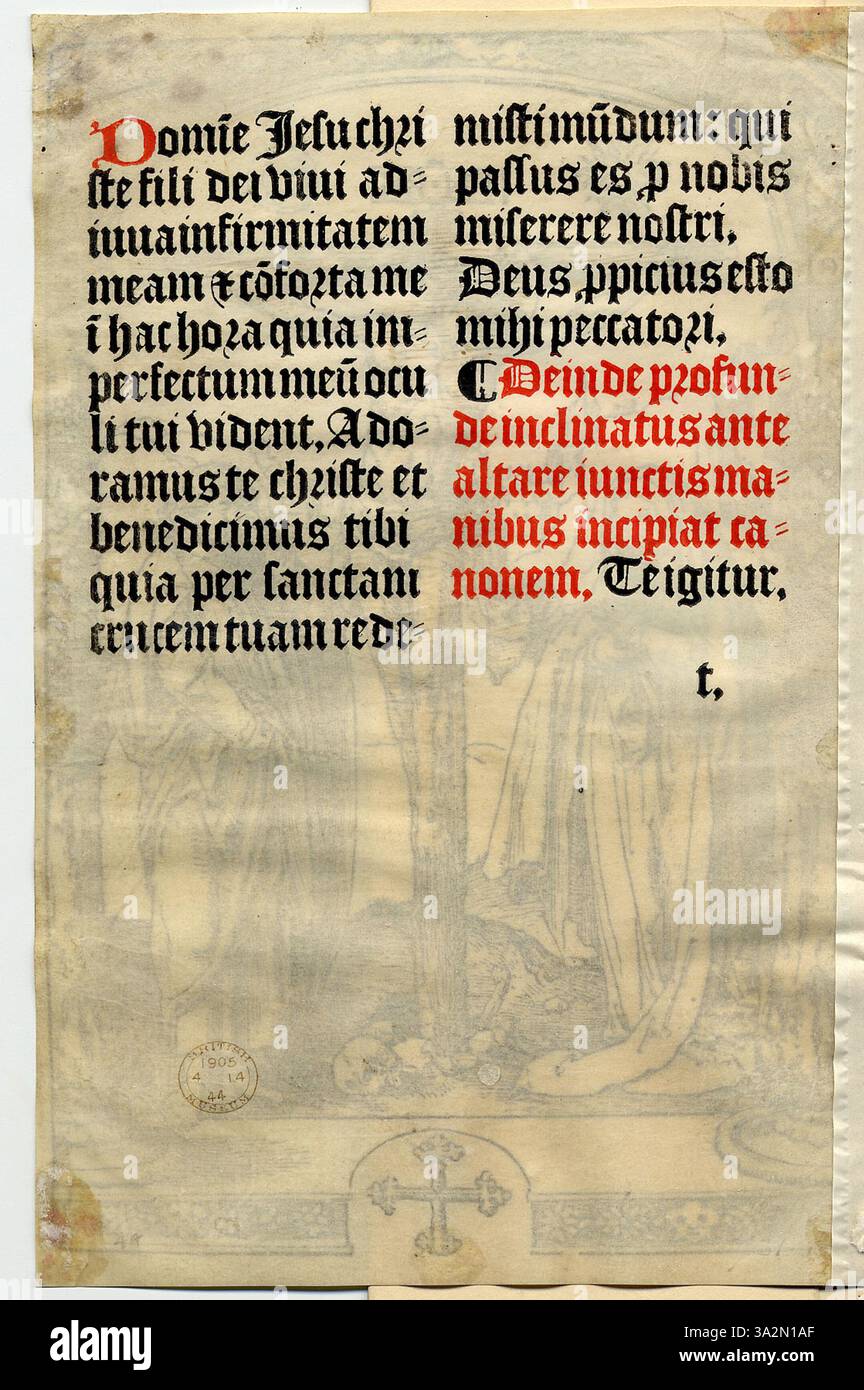 Domīe Jesu chri
ste fili dei viui ad=
iuua infirmitatem
meam ⁊ cōforta me
ī hac hora quia im=
perfectum meū ocu
li tui vident. Ado=
ramus te christe et
benedicimus tibi
quia per sanctam
crucem tuam rede=
misti mūdum: qui
passus es ꝓ nobis
miserere nostri.
Deus ꝓpicius esto
mihi peccatori.
¶ Deinde profun=
de inclinatus ante
altare iunctis ma=
nibus incipiat ca=
nonem. Te igitur.
t.
BRITISH
1905
4 14
44
MUSEUM
49
alamy
Image ID: 3A2N1AF
www.alamy.com